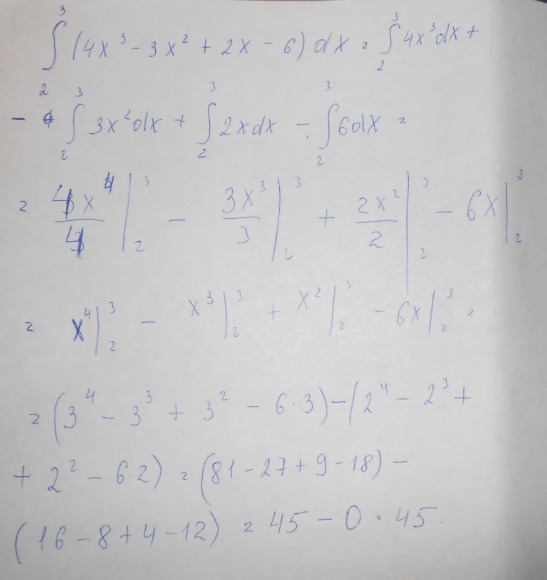 ∫₂³ (4x³ - 3x² + 2x - 6) dx = ∫₂³ 4x³dx +
- ∫₂³ 3x²dx + ∫₂³ 2xdx - ∫₂³ 6dx =
= 4x⁴/4 |₂³ - 3x³/3 |₂³ + 2x²/2 |₂³ - 6x |₂³
= x⁴ |₂³ - x³ |₂³ + x² |₂³ - 6x |₂³ =
= (3⁴ - 3³ + 3² - 6·3) - (2⁴ - 2³ +
+ 2² - 6·2) = (81 - 27 + 9 - 18) -
(16 - 8 + 4 - 12) = 45 - 0 = 45.